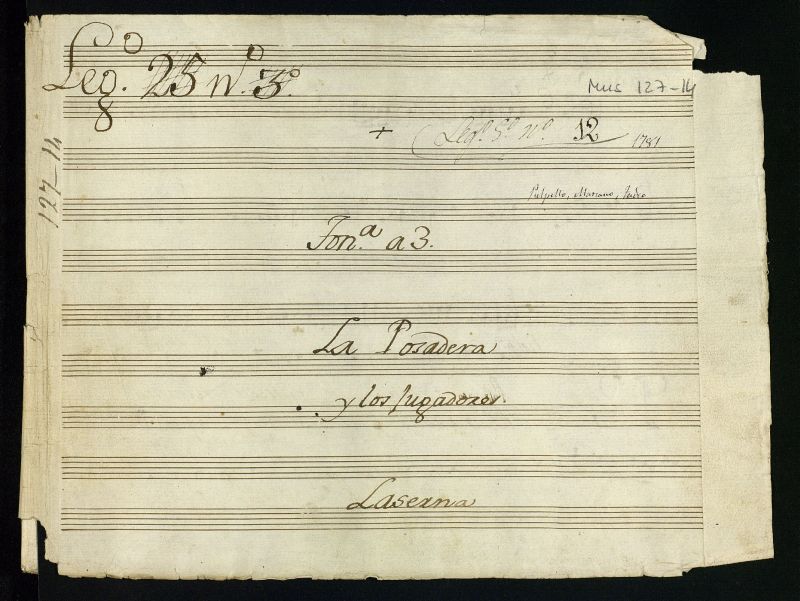 Leg.º 25 nº. 3º.
Mus 127-14
+ Legº 5º nº. 12 1781
127-14
Pulpillo, Mariano, Tadeo
Ton.ª a 3.
La Posadera
y los jugadores.
Laserna